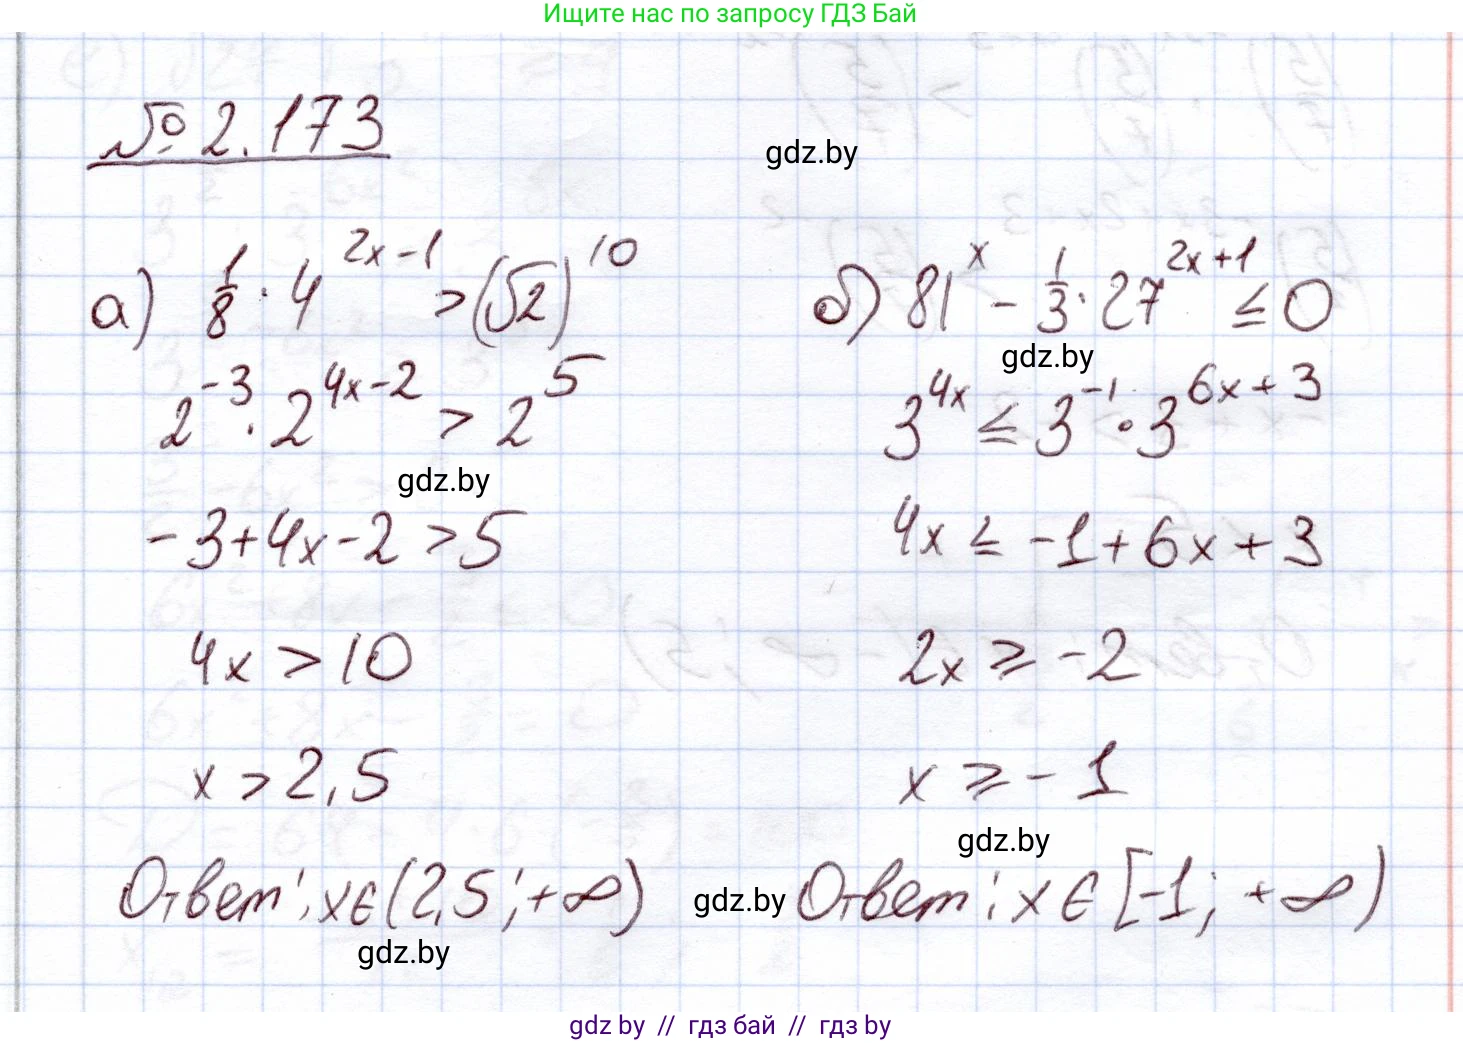 Ищите нас по запросу ГДЗ Бай
№ 2.173
gdz.by
а) 1/8 · 4^(2x-1) > (√2)^10
2^(-3) · 2^(4x-2) > 2^5
gdz.by
-3+4x-2 > 5
4x > 10
x > 2,5
Ответ: x∈(2,5; +∞)
gdz.by
б) 81^x - 1/3 · 27^(2x+1) ≤ 0
gdz.by
3^(4x) ≤ 3^(-1) · 3^(6x+3)
4x ≤ -1+6x+3
2x ≥ -2
x ≥ -1
gdz.by
gdz.by
Ответ: x ∈ [-1; +∞)
gdz by // гдз бай // гдз by